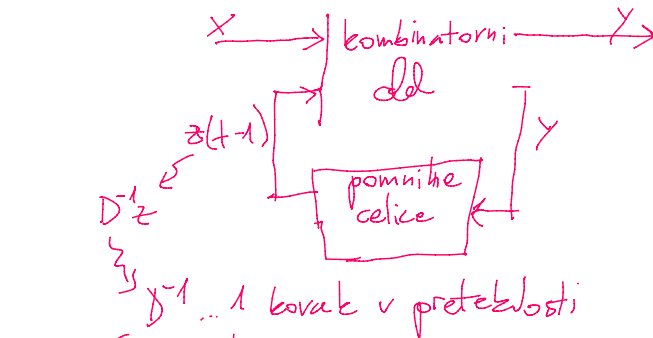 X kombinatorni Y
del
z(t-1) Y
pomnilne
celice
D⁻¹z
D⁻¹ ... 1 korak v preteklosti